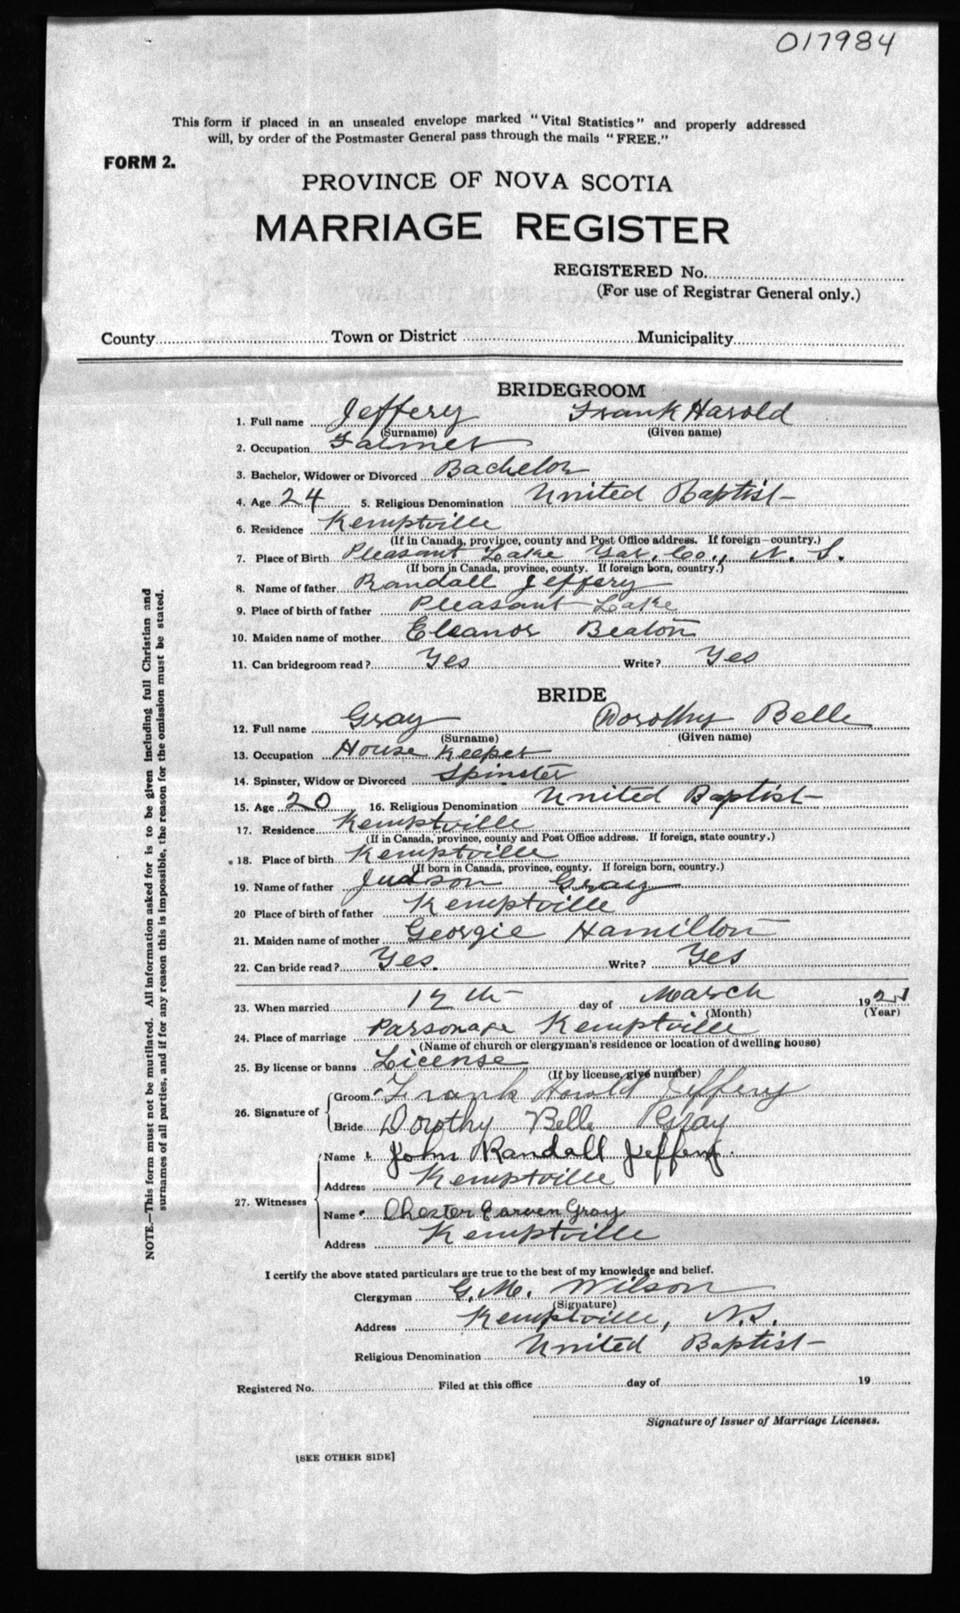 017984
This form if placed in an unsealed envelope marked "Vital Statistics" and properly addressed
will, by order of the Postmaster General pass through the mails "FREE."
FORM 2.
PROVINCE OF NOVA SCOTIA
MARRIAGE REGISTER
REGISTERED No.
(For use of Registrar General only.)
County Town or District Municipality
BRIDEGROOM
1. Full name Jeffery Frank Harold
(Surname) (Given name)
2. Occupation Farmer
3. Bachelor, Widower or Divorced Bachelor
4. Age 24 5. Religious Denomination United Baptist
6. Residence Kemptville
(If in Canada, province, county and Post Office address. If foreign—country.)
7. Place of Birth Pleasant Lake Yar. Co., N. S.
(If born in Canada, province, county. If foreign born, country.)
8. Name of father Randall Jeffery
9. Place of birth of father Pleasant Lake
10. Maiden name of mother Eleanor Beaton
11. Can bridegroom read? Yes Write? Yes
BRIDE
12. Full name Gray Dorothy Belle
(Surname) (Given name)
13. Occupation House Keeper
14. Spinster, Widow or Divorced Spinster
15. Age 20 16. Religious Denomination United Baptist
17. Residence Kemptville
(If in Canada, province, county and Post Office address. If foreign, state country.)
18. Place of birth Kemptville
(If born in Canada, province, county. If foreign born, country.)
19. Name of father Judson Gray
20 Place of birth of father Kemptville
21. Maiden name of mother Georgie Hamilton
22. Can bride read? Yes. Write? Yes
23. When married 12th day of March 19
(Month) (Year)
24. Place of marriage Parsonage Kemptville
(Name of church or clergyman's residence or location of dwelling house)
25. By license or banns License
(If by license, give number)
26. Signature of Groom Frank Harold Jeffery
Bride Dorothy Belle Gray
27. Witnesses Name John Randall Jeffery.
Address Kemptville
Name Chester Gray
Address Kemptville
I certify the above stated particulars are true to the best of my knowledge and belief.
Clergyman G. M. Wilson
(Signature)
Address Kemptville, N.S.
Religious Denomination United Baptist
Registered No. Filed at this office day of 19
Signature of Issuer of Marriage Licenses.
[SEE OTHER SIDE]
NOTE.—This form must not be mutilated. All information asked for is to be given including full Christian and
surnames of all parties, and if for any reason this is impossible, the reason for the omission must be stated.